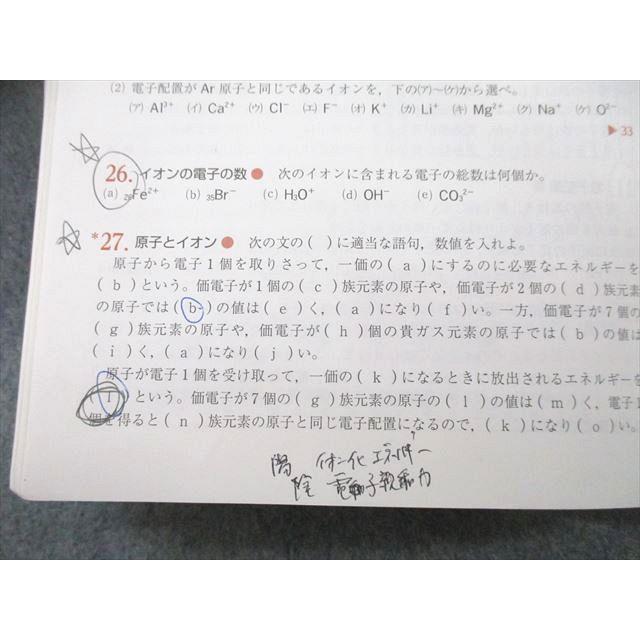 (2) 電子配置がAr原子と同じであるイオンを,下の(ア)~(ケ)から選べ。
(ア) Al³⁺ (イ) Ca²⁺ (ウ) Cl⁻ (エ) F⁻ (オ) K⁺ (カ) Li⁺ (キ) Mg²⁺ (ク) Na⁺ (ケ) O²⁻
▶33
26. イオンの電子の数● 次のイオンに含まれる電子の総数は何個か。
(a) ₂₆Fe²⁺ (b) ₃₅Br⁻ (c) H₃O⁺ (d) OH⁻ (e) CO₃²⁻
*27. 原子とイオン● 次の文の( )に適当な語句,数値を入れよ。
原子から電子1個を取りさって,一価の( a )にするのに必要なエネルギーを
( b )という。価電子が1個の( c )族元素の原子や,価電子が2個の( d )族元素
の原子では( b )の値は( e )く,( a )になり( f )い。一方,価電子が7個の
( g )族元素の原子や,価電子が( h )個の貴ガス元素の原子では( b )の値は
( i )く,( a )になり( j )い。
原子が電子1個を受け取って,一価の( k )になるときに放出されるエネルギーを
( l )という。価電子が7個の( g )族元素の原子の( l )の値は( m )く,電子1
個を得ると( n )族元素の原子と同じ電子配置になるので,( k )になり( o )い。
陽 イオン化エネルギー
陰 電子親和力